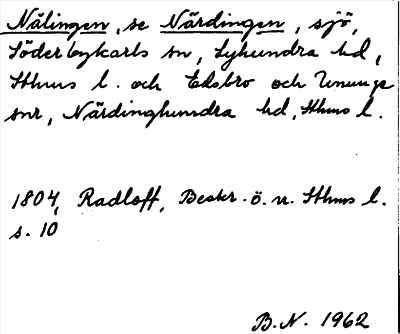 Nälingen, se Närdingen, sjö,
Söderbykarls sn, Lyhundra hd,
Sthms l. och Edsbro och Ununge
snr, Närdinghundra hd, Sthms l.
1804, Radloff, Beskr. ö. n. Sthms l.
s. 10
B.N. 1962